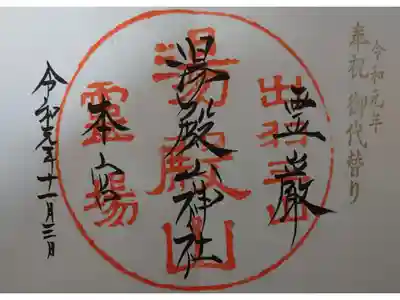 令和元年
奉祝 御代替り
出羽
霊巌
湯殿山
湯殿山神社
靈場
本宮
令和元年十一月三日